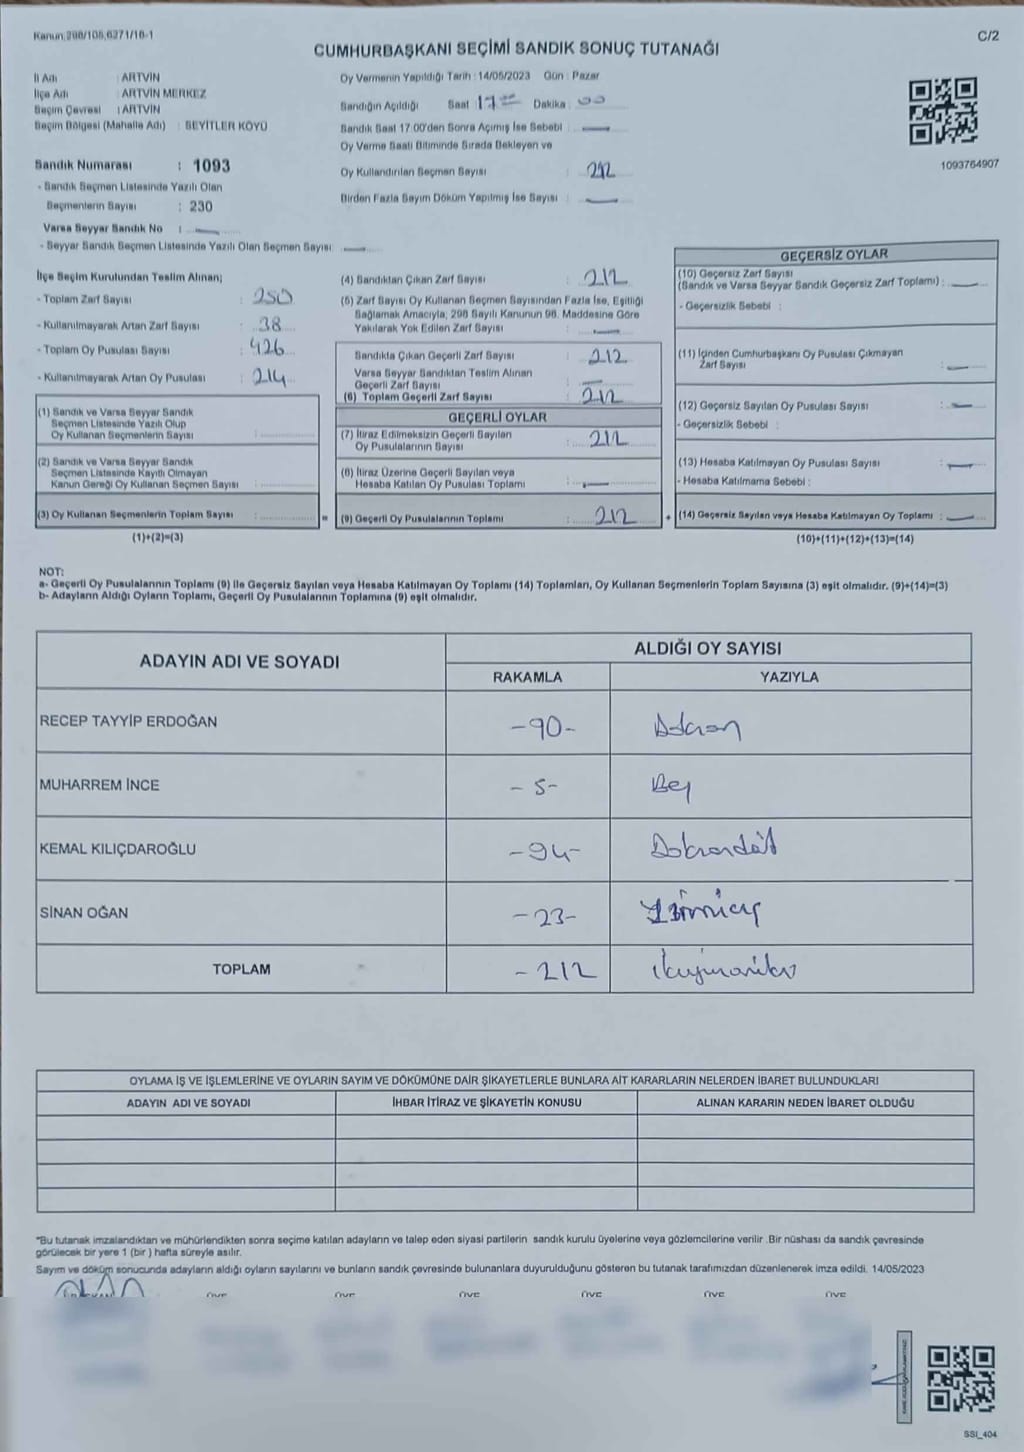 Kanun:298/105,6271/16-1
C/2
CUMHURBAŞKANI SEÇİMİ SANDIK SONUÇ TUTANAĞI
İl Adı : ARTVİN
İlçe Adı : ARTVİN MERKEZ
Seçim Çevresi : ARTVİN
Seçim Bölgesi (Mahalle Adı) : SEYİTLER KÖYÜ
Sandık Numarası : 1093
- Sandık Seçmen Listesinde Yazılı Olan
Seçmenlerin Sayısı : 230
Varsa Seyyar Sandık No :
- Seyyar Sandık Seçmen Listesinde Yazılı Olan Seçmen Sayısı:
Oy Vermenin Yapıldığı Tarih : 14/05/2023 Gün : Pazar
Sandığın Açıldığı Saat 17 00 Dakika : 00
Sandık Saat 17:00'den Sonra Açılmış İse Sebebi :
Oy Verme Saati Bitiminde Sırada Bekleyen ve
Oy Kullandırılan Seçmen Sayısı : 212
Birden Fazla Sayım Döküm Yapılmış İse Sayısı :
1093764907
İlçe Seçim Kurulundan Teslim Alınan;
- Toplam Zarf Sayısı : 250
- Kullanılmayarak Artan Zarf Sayısı : 38
- Toplam Oy Pusulası Sayısı : 426
- Kullanılmayarak Artan Oy Pusulası : 214
(1) Sandık ve Varsa Seyyar Sandık
Seçmen Listesinde Yazılı Olup
Oy Kullanan Seçmenlerin Sayısı :
(2) Sandık ve Varsa Seyyar Sandık
Seçmen Listesinde Kayıtlı Olmayan
Kanun Gereği Oy Kullanan Seçmen Sayısı :
(3) Oy Kullanan Seçmenlerin Toplam Sayısı : =
(1)+(2)=(3)
(4) Sandıktan Çıkan Zarf Sayısı : 212
(5) Zarf Sayısı Oy Kullanan Seçmen Sayısından Fazla İse, Eşitliği
Sağlamak Amacıyla, 298 Sayılı Kanunun 98. Maddesine Göre
Yakılarak Yok Edilen Zarf Sayısı :
Sandıkta Çıkan Geçerli Zarf Sayısı : 212
Varsa Seyyar Sandıktan Teslim Alınan
Geçerli Zarf Sayısı :
(6) Toplam Geçerli Zarf Sayısı : 212
GEÇERLİ OYLAR
(7) İtiraz Edilmeksizin Geçerli Sayılan
Oy Pusulalarının Sayısı : 212
(8) İtiraz Üzerine Geçerli Sayılan veya
Hesaba Katılan Oy Pusulası Toplamı :
(9) Geçerli Oy Pusulalarının Toplamı : 212 +
GEÇERSİZ OYLAR
(10) Geçersiz Zarf Sayısı
(Sandık ve Varsa Seyyar Sandık Geçersiz Zarf Toplamı) :
- Geçersizlik Sebebi :
(11) İçinden Cumhurbaşkanı Oy Pusulası Çıkmayan
Zarf Sayısı :
(12) Geçersiz Sayılan Oy Pusulası Sayısı :
- Geçersizlik Sebebi :
(13) Hesaba Katılmayan Oy Pusulası Sayısı :
- Hesaba Katılmama Sebebi :
(14) Geçersiz Sayılan veya Hesaba Katılmayan Oy Toplamı :
(10)+(11)+(12)+(13)=(14)
NOT:
a- Geçerli Oy Pusulalarının Toplamı (9) ile Geçersiz Sayılan veya Hesaba Katılmayan Oy Toplamı (14) Toplamları, Oy Kullanan Seçmenlerin Toplam Sayısına (3) eşit olmalıdır. (9)+(14)=(3)
b- Adayların Aldığı Oyların Toplamı, Geçerli Oy Pusulalarının Toplamına (9) eşit olmalıdır.
ADAYIN ADI VE SOYADI
ALDIĞI OY SAYISI
RAKAMLA YAZIYLA
RECEP TAYYİP ERDOĞAN -90- Doksan
MUHARREM İNCE -5- Beş
KEMAL KILIÇDAROĞLU -94- Doksandört
SİNAN OĞAN -23- Yirmiüç
TOPLAM -212 ikiyüzoniki
OYLAMA İŞ VE İŞLEMLERİNE VE OYLARIN SAYIM VE DÖKÜMÜNE DAİR ŞİKAYETLERLE BUNLARA AİT KARARLARIN NELERDEN İBARET BULUNDUKLARI
ADAYIN ADI VE SOYADI İHBAR İTİRAZ VE ŞİKAYETİN KONUSU ALINAN KARARIN NEDEN İBARET OLDUĞU
"Bu tutanak imzalandıktan ve mühürlendikten sonra seçime katılan adayların ve talep eden siyasi partilerin sandık kurulu üyelerine veya gözlemcilerine verilir .Bir nüshası da sandık çevresinde
görülecek bir yere 1 (bir ) hafta süreyle asılır.
Sayım ve döküm sonucunda adayların aldığı oyların sayılarını ve bunların sandık çevresinde bulunanlara duyurulduğunu gösteren bu tutanak tarafımızdan düzenlenerek imza edildi. 14/05/2023
ÜYE ÜYE ÜYE ÜYE ÜYE ÜYE
SSI_404